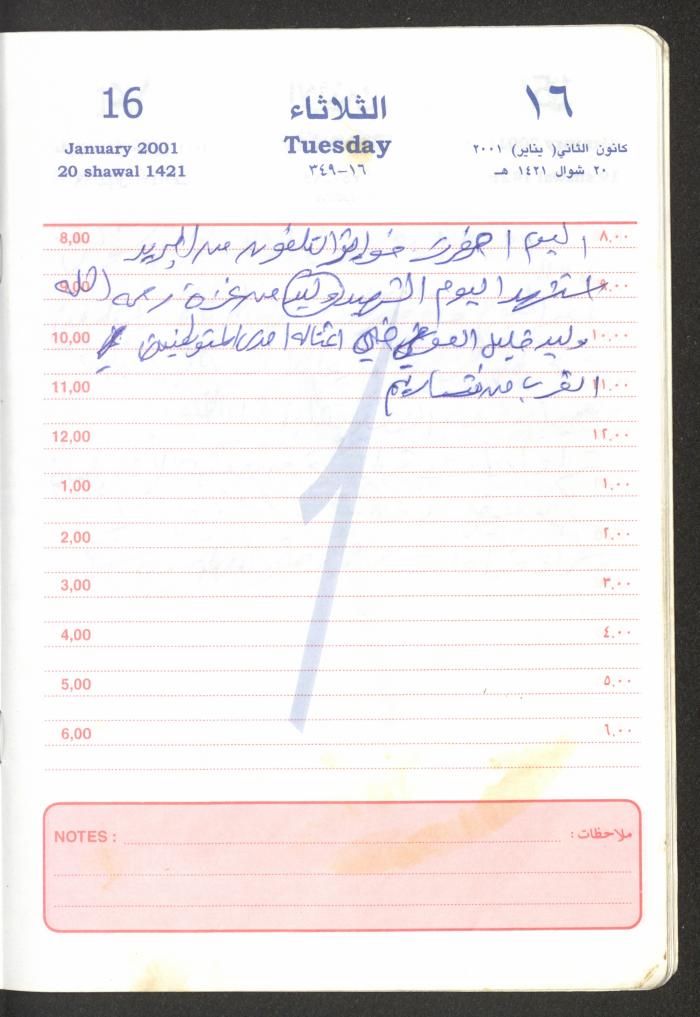 16
الثلاثاء
١٦
January 2001
Tuesday
كانون الثاني( يناير) ٢٠٠١
20 shawal 1421
١٦-٣٤٩
٢٠ شوال ١٤٢١ هـ
8,00 ٨,٠٠
اليوم احضرت فواتير التلفون من البريد
9,00 ٩,٠٠
استشهد اليوم الشهيد وليد من غزة رحمه الله
10,00 ١٠,٠٠
وليد خليل في احدى المستوطنين
11,00 ١١,٠٠
القرب من نتساريم
12,00 ١٢,٠٠
1,00 ١,٠٠
2,00 ٢,٠٠
3,00 ٣,٠٠
4,00 ٤,٠٠
5,00 ٥,٠٠
6,00 ٦,٠٠
1
NOTES : ملاحظات :